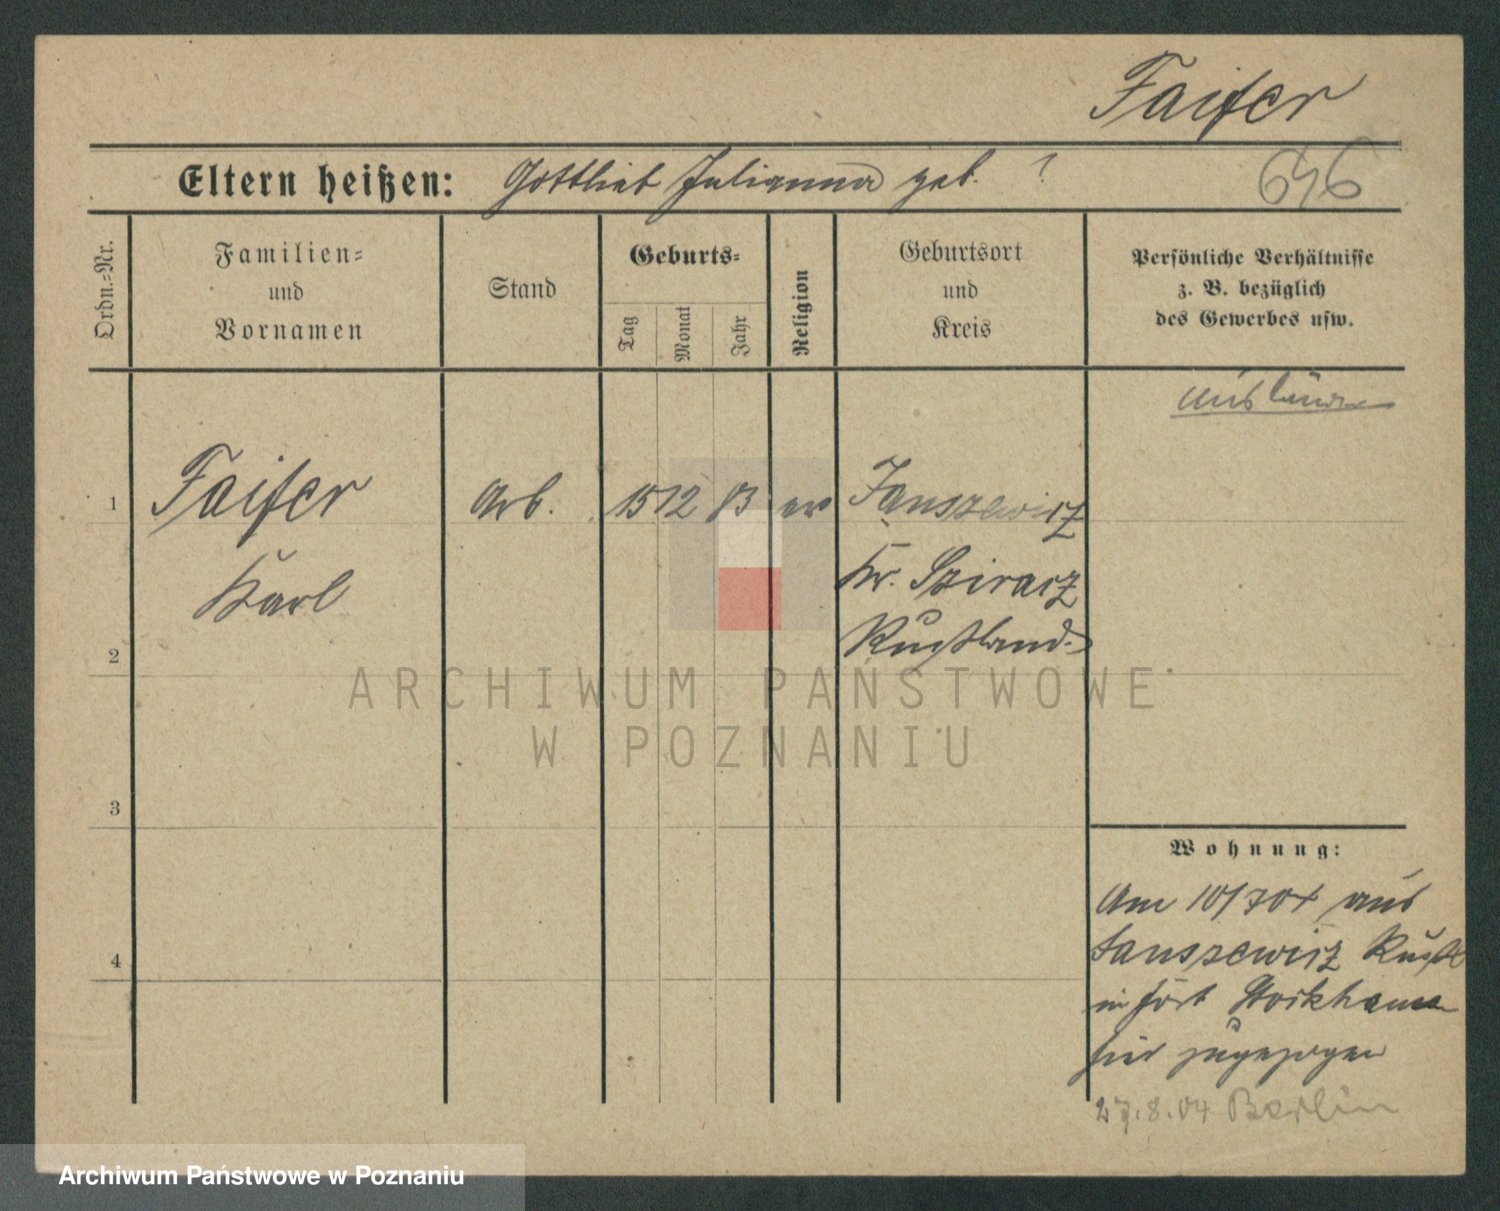 Faifer
Eltern heißen: Gottlieb Julianna geb. ?
646
Ordn.-Nr.
Familien-
und
Vornamen
Stand
Geburts-
Tag
Monat
Jahr
Religion
Geburtsort
und
Kreis
Persönliche Verhältnisse
z. B. bezüglich
des Gewerbes usw.
Ausländer
1 Faifer Arb. 15 12 83 ev Januszewicz
Karl
Kr. Sziracz
Rußland.
2
3
4
Wohnung:
Am 10/7 04 aus
Januszewicz Rußl
in fort
hier zugezogen
27.8.04 Berlin
ARCHIWUM PAŃSTWOWE
W POZNANIU
Archiwum Państwowe w Poznaniu